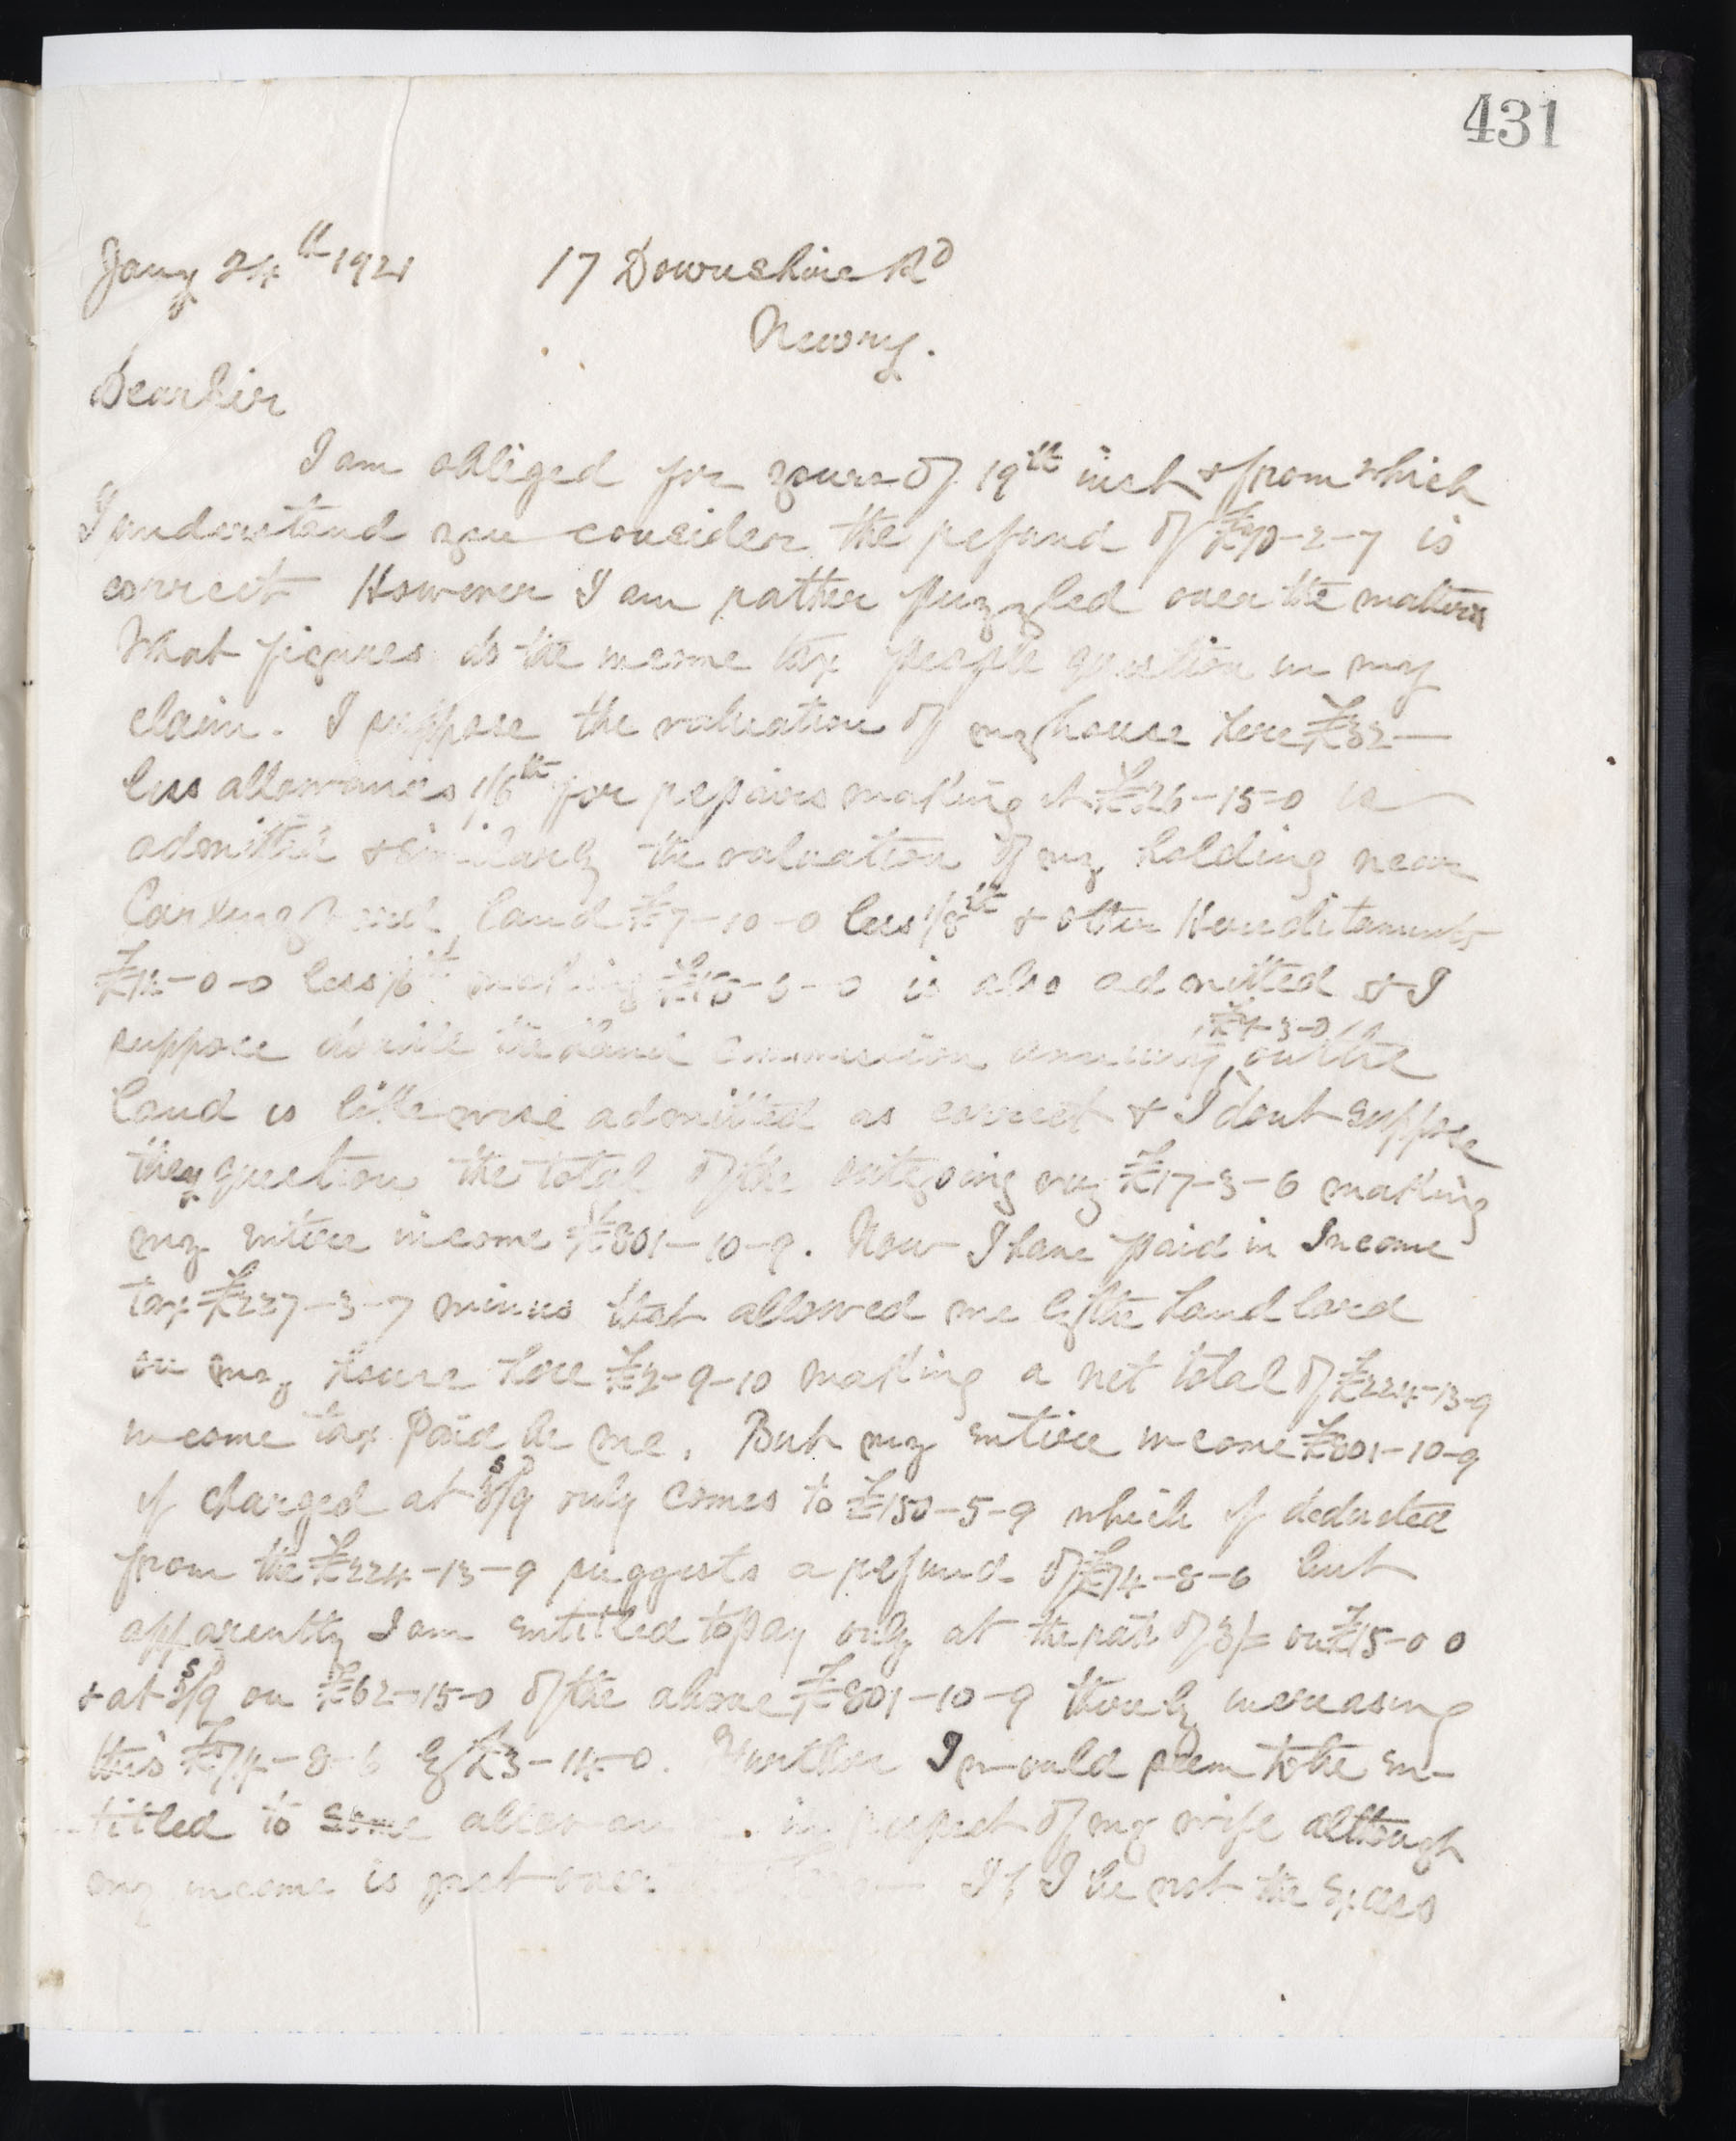 431
Jany 24th 1921 17 Downshire Rd
Newry.
Dear Sir
I am obliged for yours of 19th inst & from which
I understand you consider the refund of £70-2-7 is
correct However I am rather puzzled over the matter
What figures do the income tax people question in my
claim. I suppose the valuation of my house here £32—
less allowances 1/6th for repairs making it £26-15-0 is
admitted & similarly the valuation of my holding near
land £7-10-0 less 1/8th & other Hereditaments
£14-0-0 less 1/6th making is also admitted & I
suppose double the Land Commission annuity £4-3-0 on the
land is likewise admitted as correct & I dont suppose
they question the total of the outgoing £17-3-6 making
my entire income £801-10-9. Now I have paid in Income
tax £227-3-7 minus that allowed me by the Landlord
on my house here £2-9-10 making a net total of £224-13-9
income tax paid be me. But my entire income £801-10-9
if charged at 3s/9d only comes to £150-5-9 which if deducted
from the £224-13-9 suggests a refund of £74-8-6 but
apparently I am entitled to pay only at the rate of 3/= on £15-0 0
& at 3s/9 on £62-15-0 of the above £801-10-9 thereby increasing
this £74-8-6 by £3-14-0. Further I would seem to be en-
titled to some in respect of my wife although
my income is just over If I be not the excess